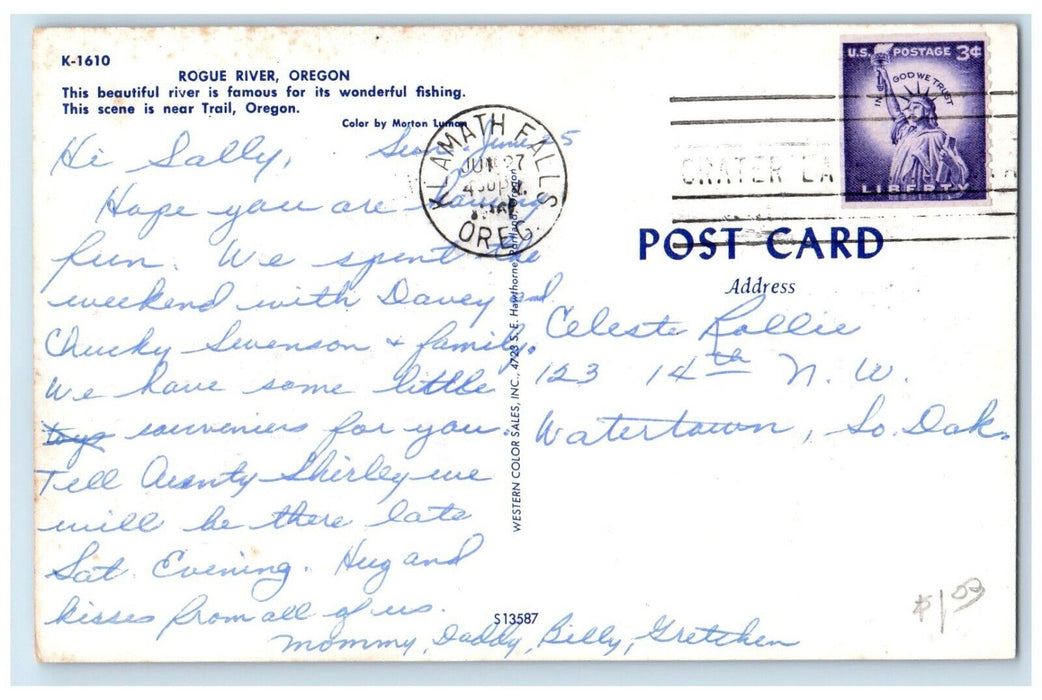 K-1610
ROGUE RIVER, OREGON
This beautiful river is famous for its wonderful fishing.
This scene is near Trail, Oregon.
Color by Morton Luman
Hi Sally,
Hope you are having
fun. We spent the
weekend with Davey and
Chucky Swenson + family.
We have some little
toys souveniers for you.
Tell Aunty Shirley we
will be there late
Sat. Evening. Hug and
kisses from all of us.
Mommy, Daddy, Billy, Gretchen
KLAMATH FALLS
JUN 27
OREG.
WESTERN COLOR SALES, INC., 4723 S.E. Hawthorne, Portland, Oregon
S13587
U.S. POSTAGE 3¢
IN GOD WE TRUST
LIBERTY
CRATER LA
POST CARD
Address
Celeste Rollie
123 14th N. W.
Watertown, So. Dak.